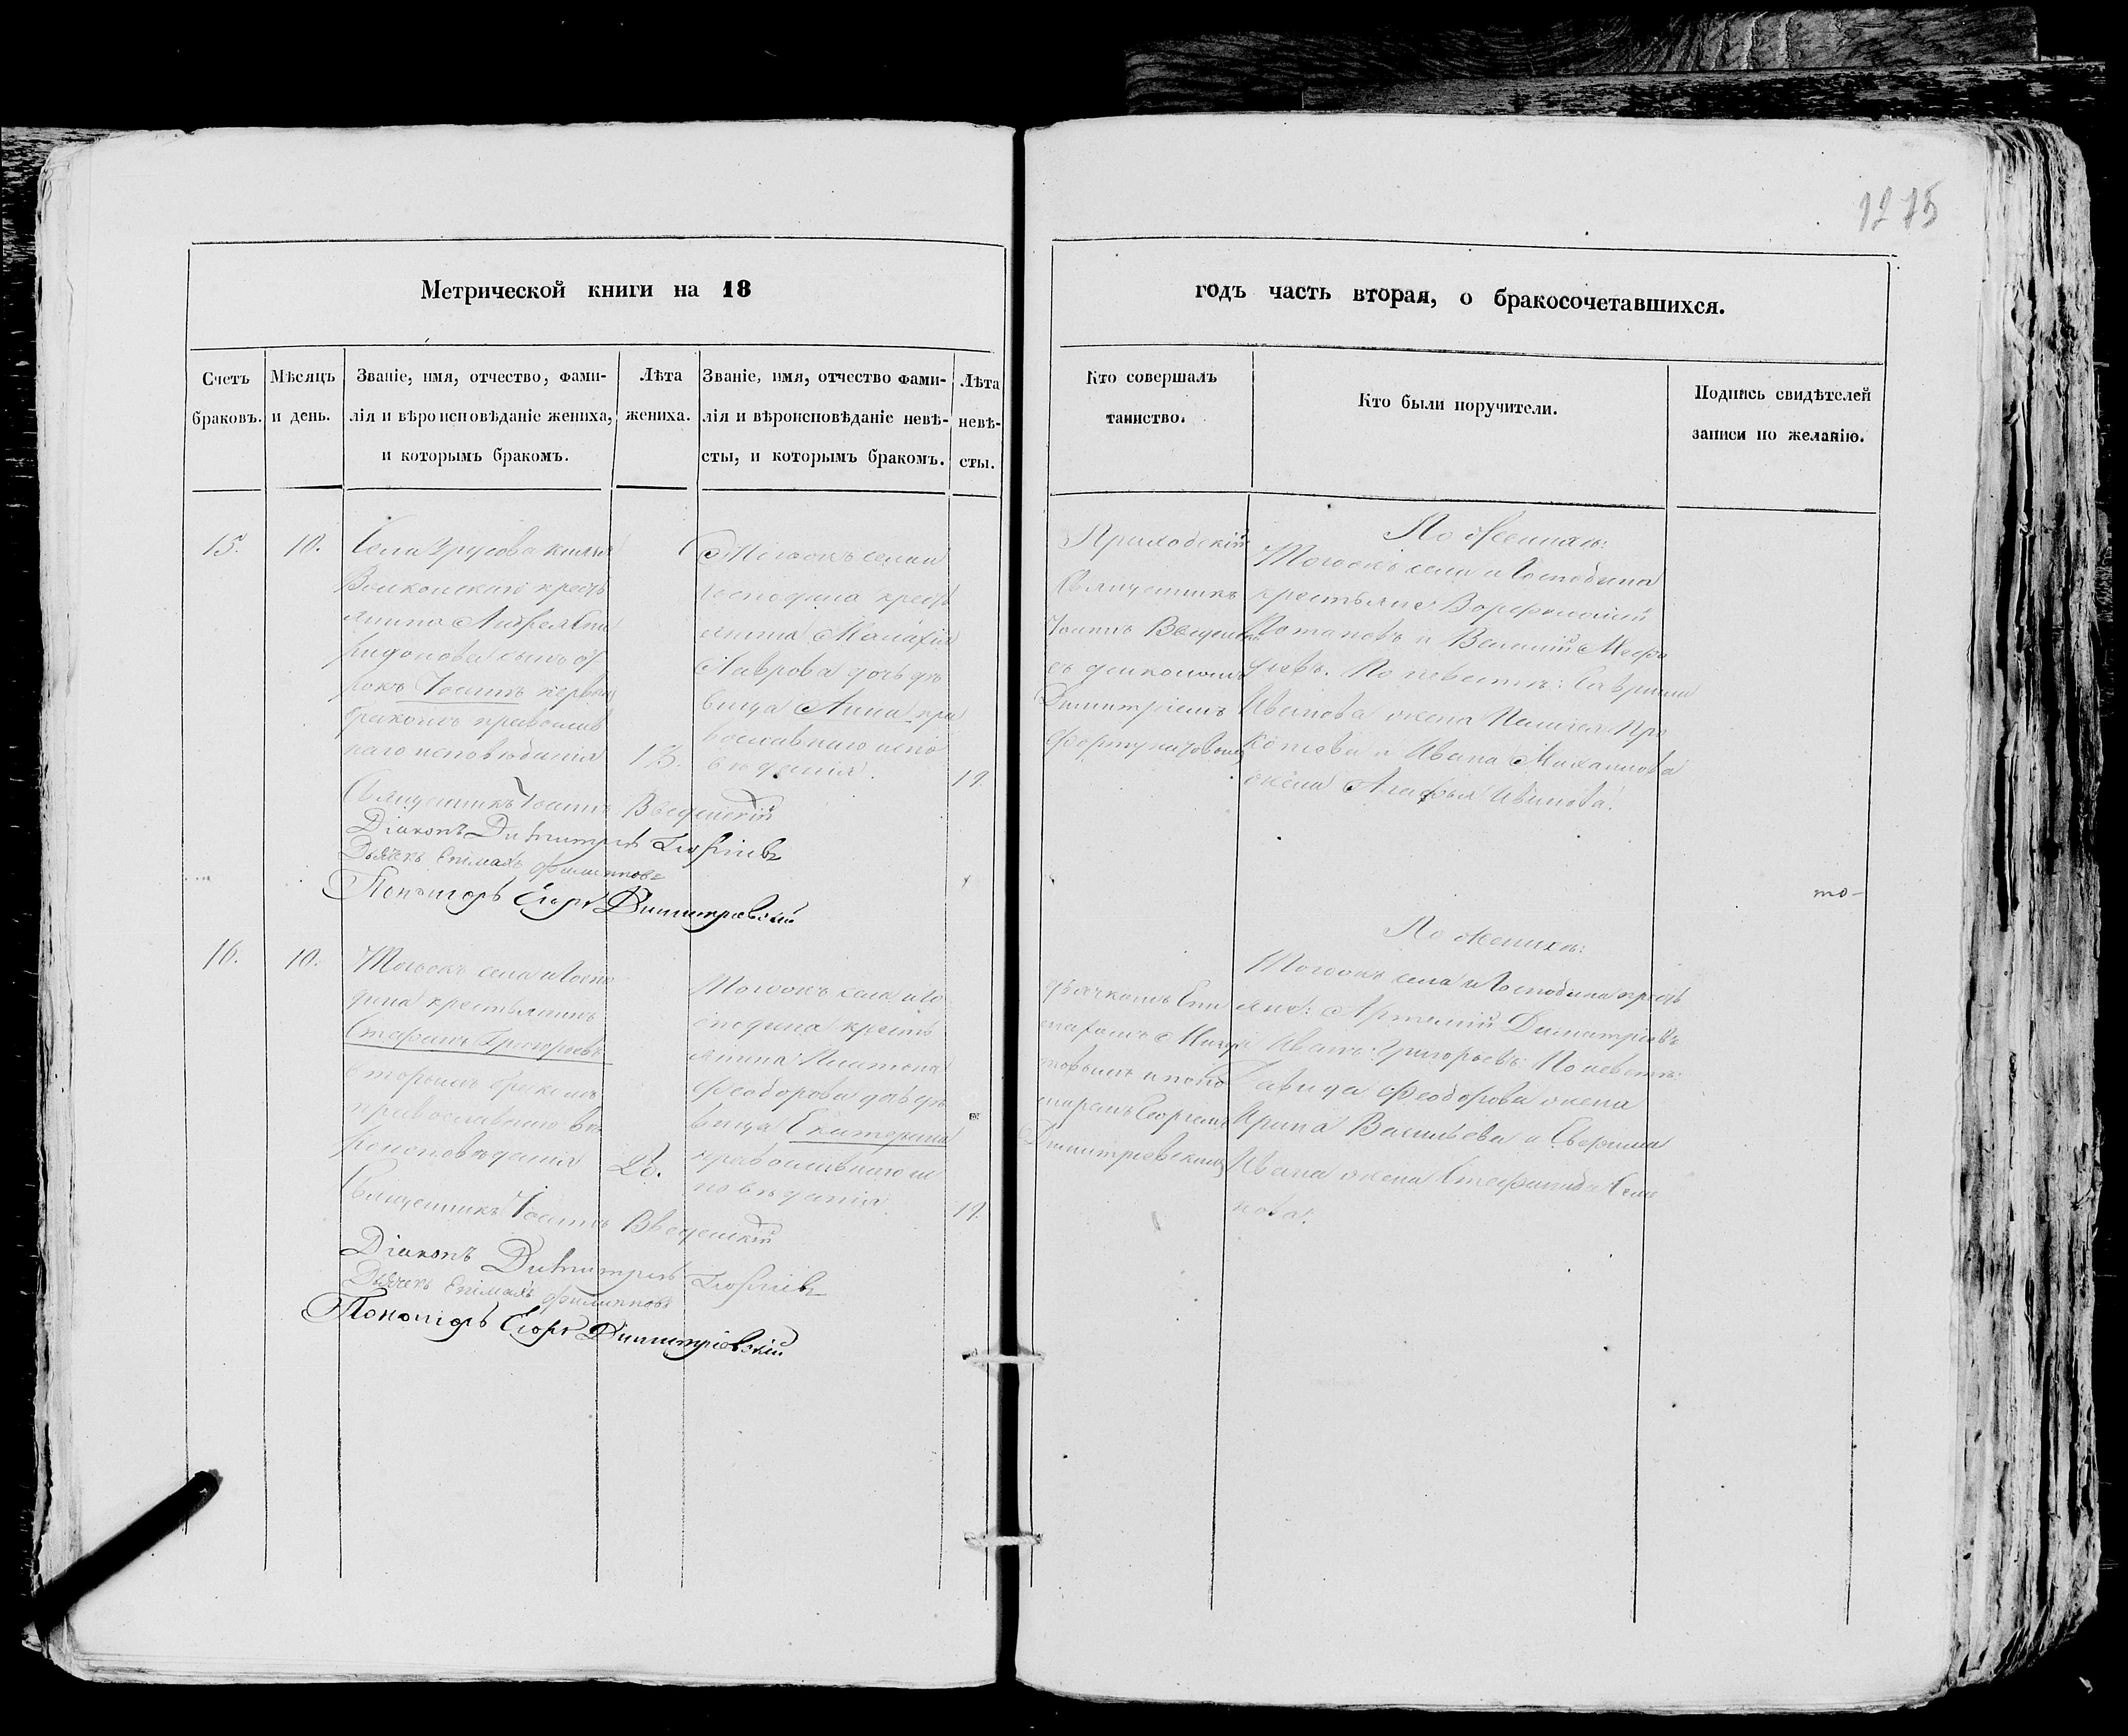 1275
Метрической книги на 18
годъ часть вторая, о бракосочетавшихся.
Счетъ браковъ.
Мѣсяцъ и день.
Званіе, имя, отчество, фами-
лія и вѣроисповѣданіе жениха,
и которымъ бракомъ.
Лѣта
жениха.
Званіе, имя, отчество фами-
лія и вѣроисповѣданіе невѣ-
сты, и которымъ бракомъ.
Лѣта
невѣ-
сты.
Кто совершалъ
таинство.
Кто были поручители.
Подпись свидѣтелей
записи по желанію.
15.
10.
Села князя
Волконскаго кресть
янина Андрея Спи
ридонова сынъ от
рокъ Іоаннъ первымъ
бракомъ православ
наго исповѣданія
18.
Тогожъ села и
господина кресть
янина
Лаврова дочь дѣ
вица Анна пра
вославнаго испо
вѣданія.
19.
Приходскій
Священникъ
Іоаннъ Введенскій
съ діакономъ
Димитріемъ
По женихѣ:
Тогожъ села и Господина
крестьяне:
Потаповъ и Василій
По невѣстѣ: Гавріила
Иванова жена Пелагея Про
копьева и Ивана Михаилова
жена Агафья Иванова.
Священникъ Іоаннъ Введенскій
Діаконъ Димитрій Георгіевъ
Дьячекъ Епимахъ Филипповъ
Пономарь Егоръ Димитріевскій
то-
16.
10.
Тогожъ села и Госпо
дина крестьянинъ
Стефанъ Григорьевъ
вторымъ бракомъ
православнаго вѣ
роисповѣданія
Тогожъ села и Го
сподина кресть
янина Платона
Феодорова дочь дѣ
вица Екатерина
православнаго ис
повѣданія.
19.
дьячкомъ Епи
махомъ
и поно
маремъ Георгіемъ
Димитріевскимъ
По женихѣ:
Тогожъ села и Господина кресть
яне: Артемій Димитріевъ
и Иванъ Григорьевъ. По невѣстѣ:
Давида Феодорова жена
Ирина Васильева и
Ивана жена Стефанида Семе
нова.
Священникъ Іоаннъ Введенскій
Діаконъ Димитрій Георгіевъ
Дьячекъ Епимахъ Филипповъ
Пономарь Егоръ Димитріевскій